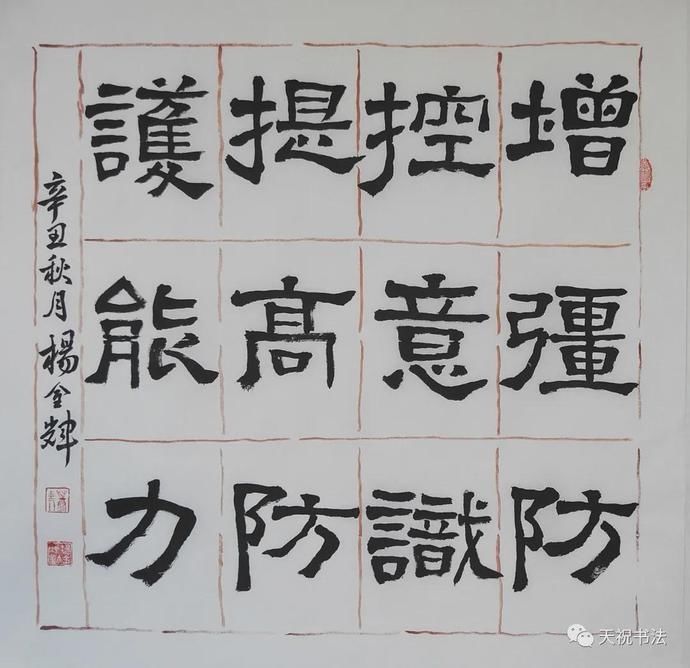 增彊防
控意識
提高防
護能力
辛丑秋月楊金輝
天祝书法